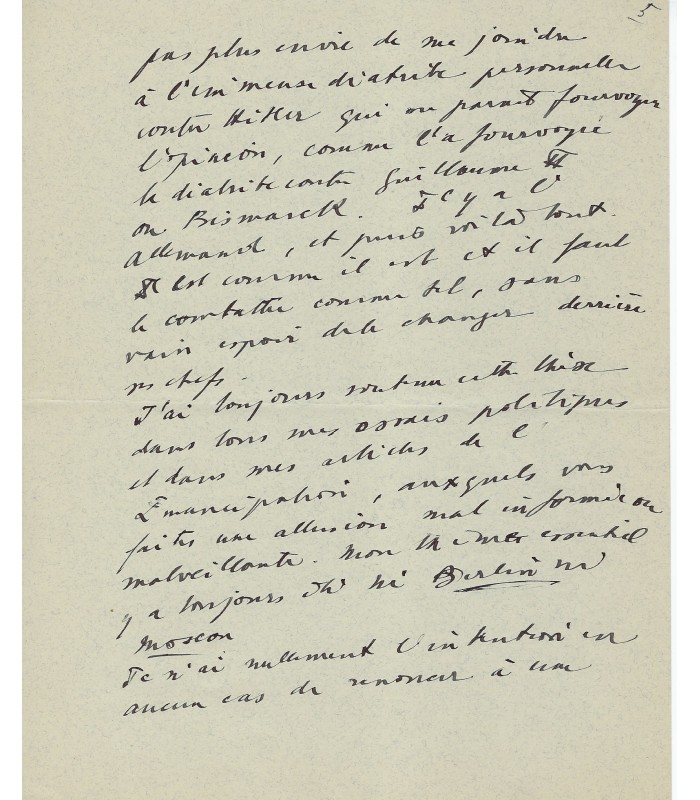 5
pas plus envie de me joindre
à l'immense diatribe personnelle
contre Hitler qui me parait fourvoyer
l'opinion, comme l'a fourvoyée
la diatribe contre Guillaume II
ou Bismarck. Il y a l'
Allemand, et puis voilà tout.
Il est comme il est et il faut
le combattre comme tel, sans
vain espoir de le changer derrière
ses chefs.
J'ai toujours soutenu cette thèse
dans tous mes essais politiques
et dans mes articles de l'
Emancipation, auxquels vous
faites une allusion mal informée ou
malveillante. Mon essentiel
y a toujours été ni Berlin ni
Moscou
Je n'ai nullement l'intention en
aucun cas de renoncer à une